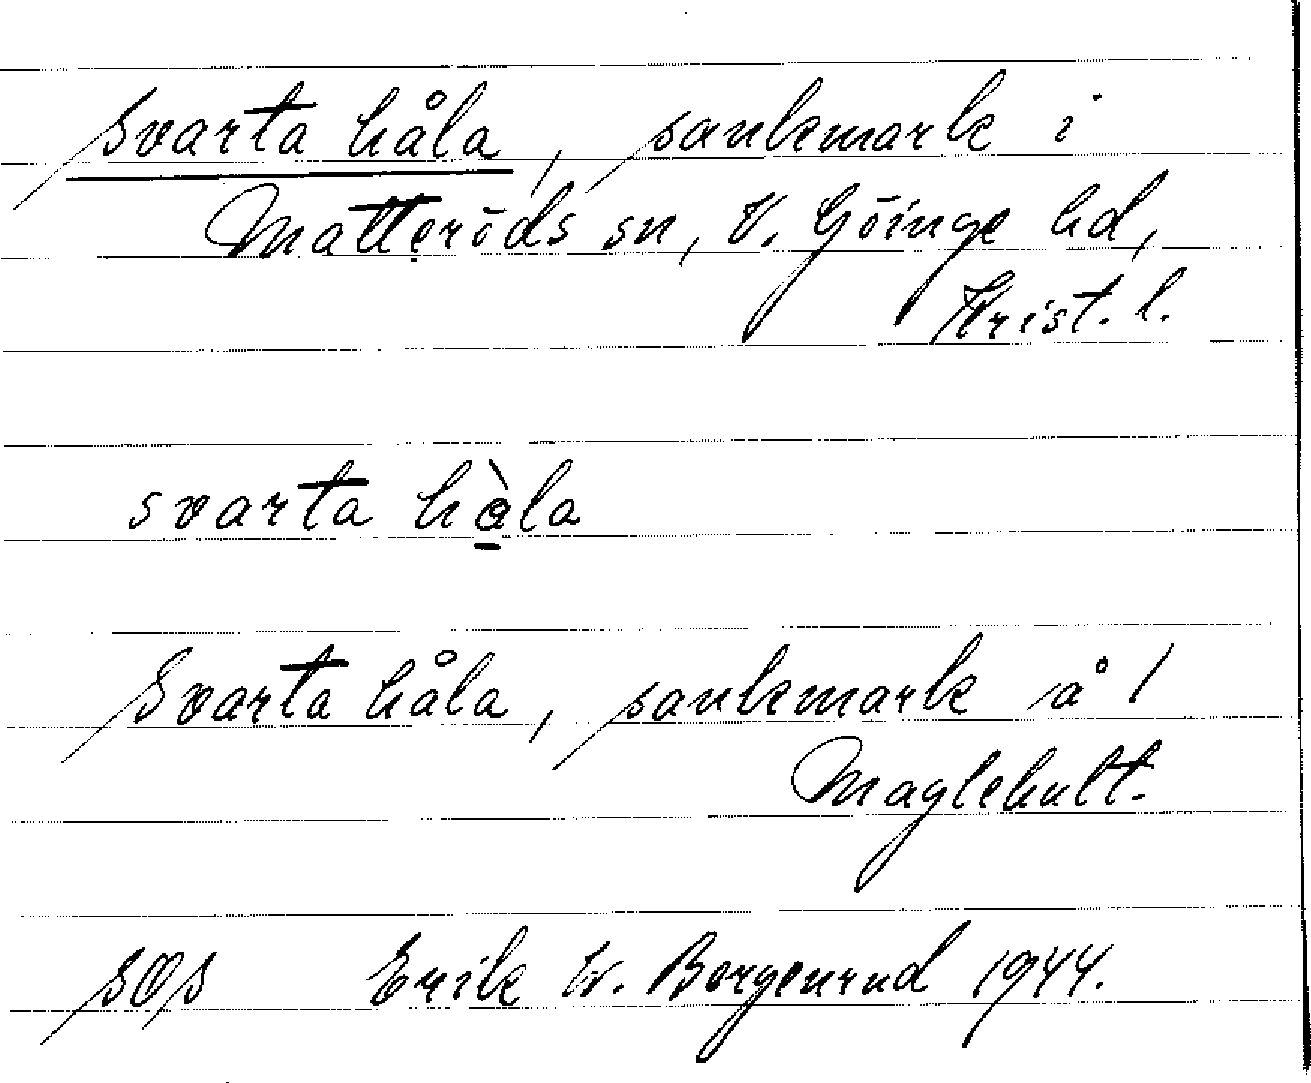 Svarta håla, sankmark i
Matteröds sn, V. Göinge hd,
Krist. l.
svarta hàla
Svarta håla, sankmark å /
Maglehult.
SOS Erik W. Borgenrud 1944.